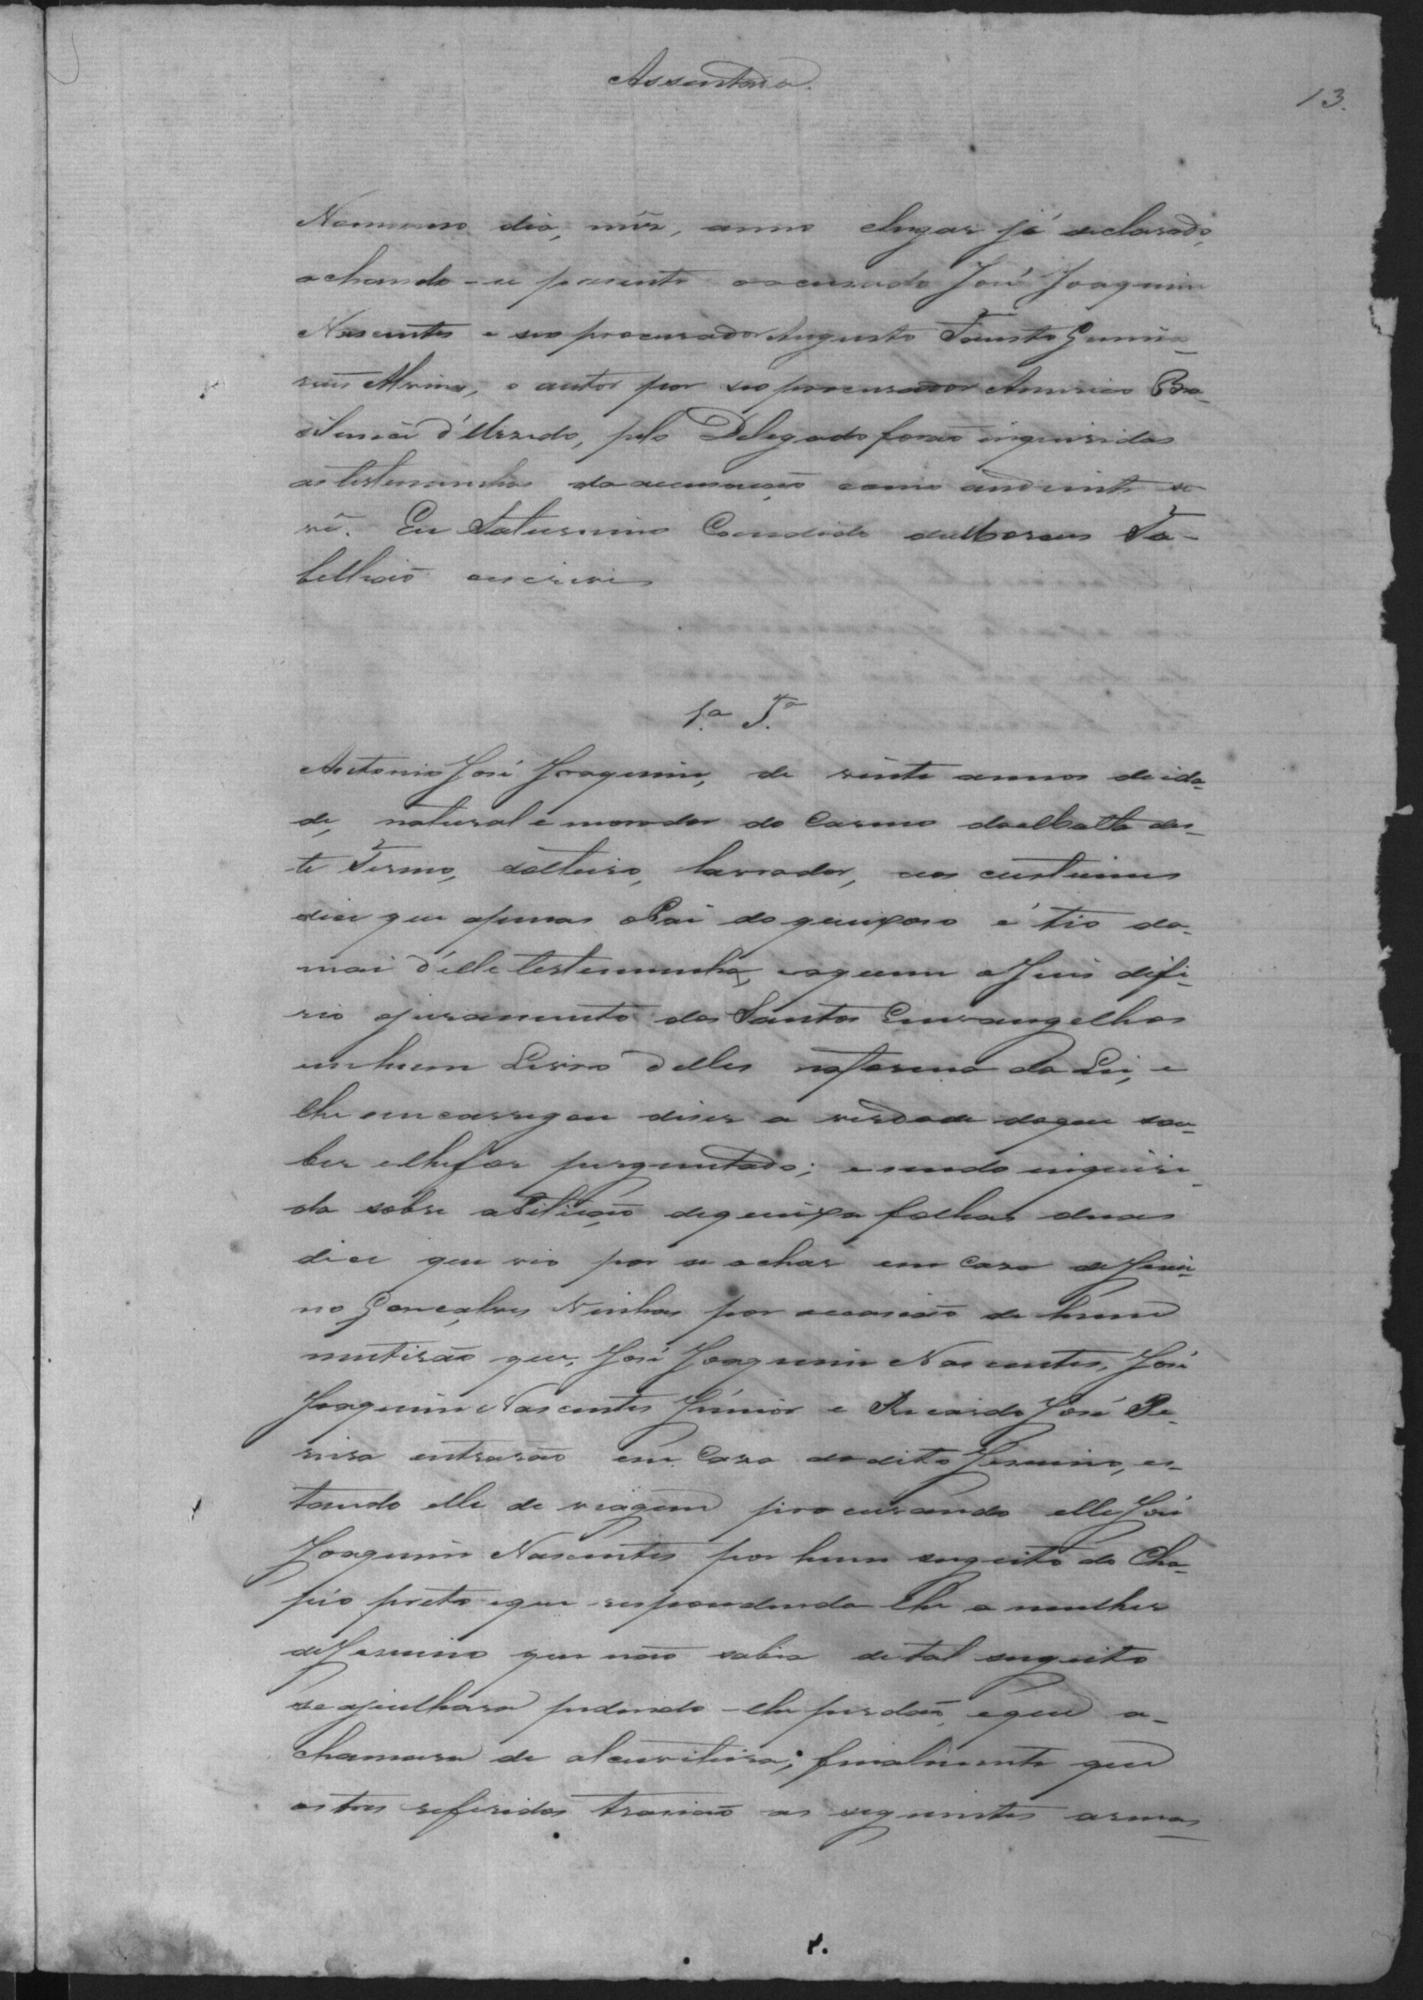 Assentada.
13.
No mesmo dia, mês, anno e lugar já declarado,
achando-se presente o accusado José Joaquim
Nascentes e seo procurador Augusto Fausto Guima-
rães Alvim, o autor por seo procurador Americo Bra-
silense d'Azevedo, pelo Delegado forão inquiridas
as testemunhas da accusação como ao diante se
vê. Eu Saturnino Candido de Moraes Ta-
bellião escrevi
1.ª T.ª
Antonio José Joaquim, de vinte annos de ida-
de, natural e morador do Carmo da Matta des-
te Termo, solteiro, lavrador, aos custumes
dice que apenas o Pai do queixoso é tio da
mai d'elle testemunha, a quem o Juis defe-
rio o juramento dos Santos Envangelhos
em hum Livro delles na forma da Lei, e
lhe encarregou diser a verdade do que sou-
ber e lhe for perguntado; e sendo inqueri-
da sobre a Petição de queixa folhas duas
dice que vio por se achar em casa de Jesui-
no Gonçalves Ninhas por occasião de hum
mutirão que, José Joaquim Nascentes, José
Joaquim Nascentes Júnior e Ricardo José Pe-
reira entrarão em casa do dito Jesuino, es-
tando elle de viagem procurando elle José
Joaquim Nascentes por hum sugeito de Cha-
péo preto e que respondendo lhe a mulher
de Jesuino que não sabia de tal sugeito
se ajuelhara pedindo-lhe perdão, e que a
chamara de alcuviteira; finalmente que
os tres referidos trasião as seguintes armas